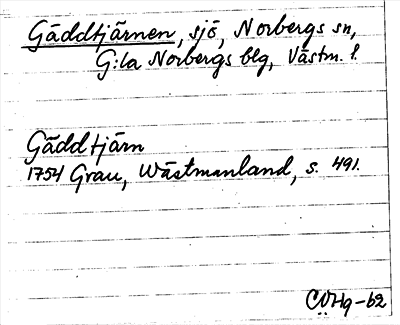 Gäddtjärnen, sjö, Norbergs sn,
G:la Norbergs blg, Västm. l.
Gäddtjärn
1754 Grau, Wästmanland, s. 491.